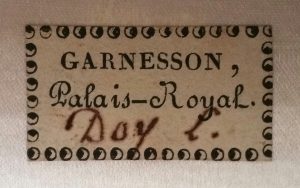 GARNESSON,
Palais-Royal.
Doy C.